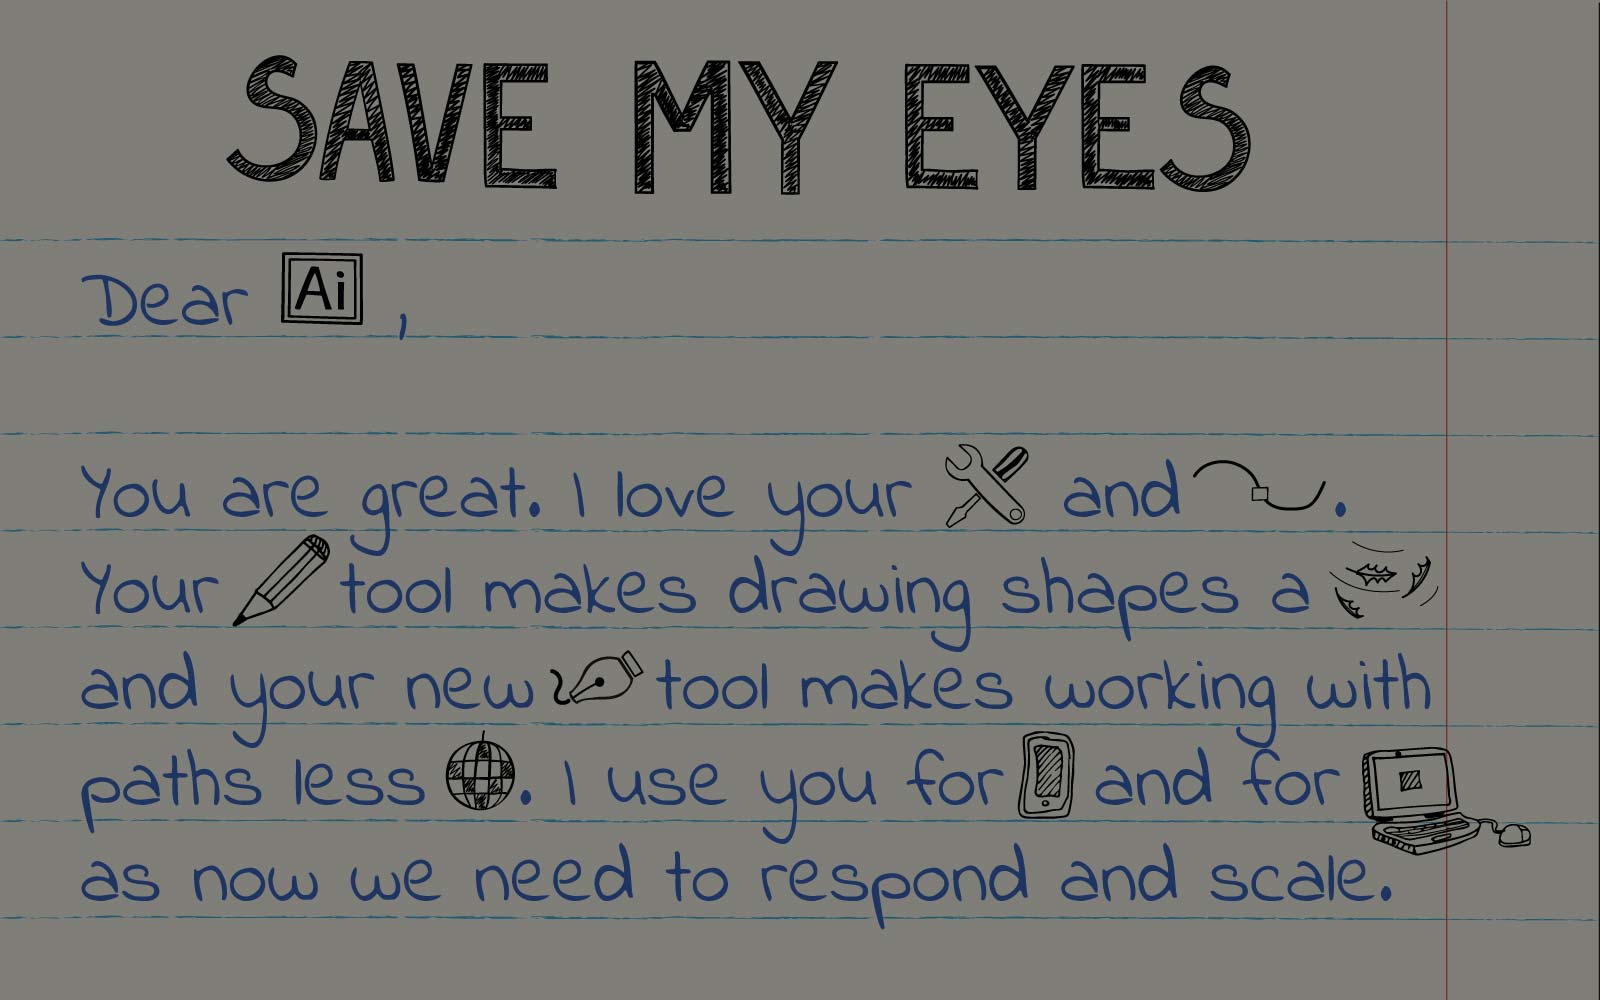 SAVE MY EYES
Dear Ai ,
You are great. I love your and .
Your tool makes drawing shapes a
and your new tool makes working with
paths less . I use you for and for
as now we need to respond and scale.